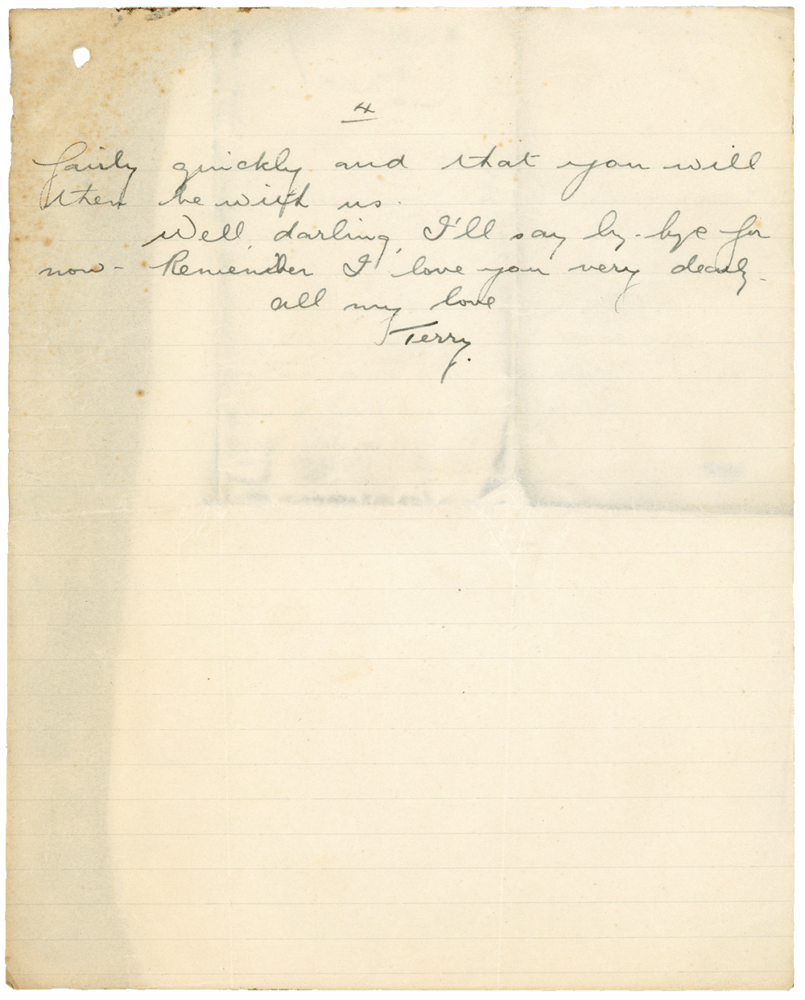 4
fairly quickly and that you will
then be with us.
Well, darling, I'll say by-bye for
now - Remember I love you very dearly.
all my love
Terry.